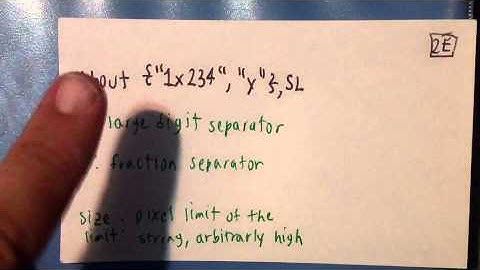 2E
{"1x234", "y"}, SL
large digit separator
fraction separator
size: pixel limit of the
limit: string, arbitrarly high